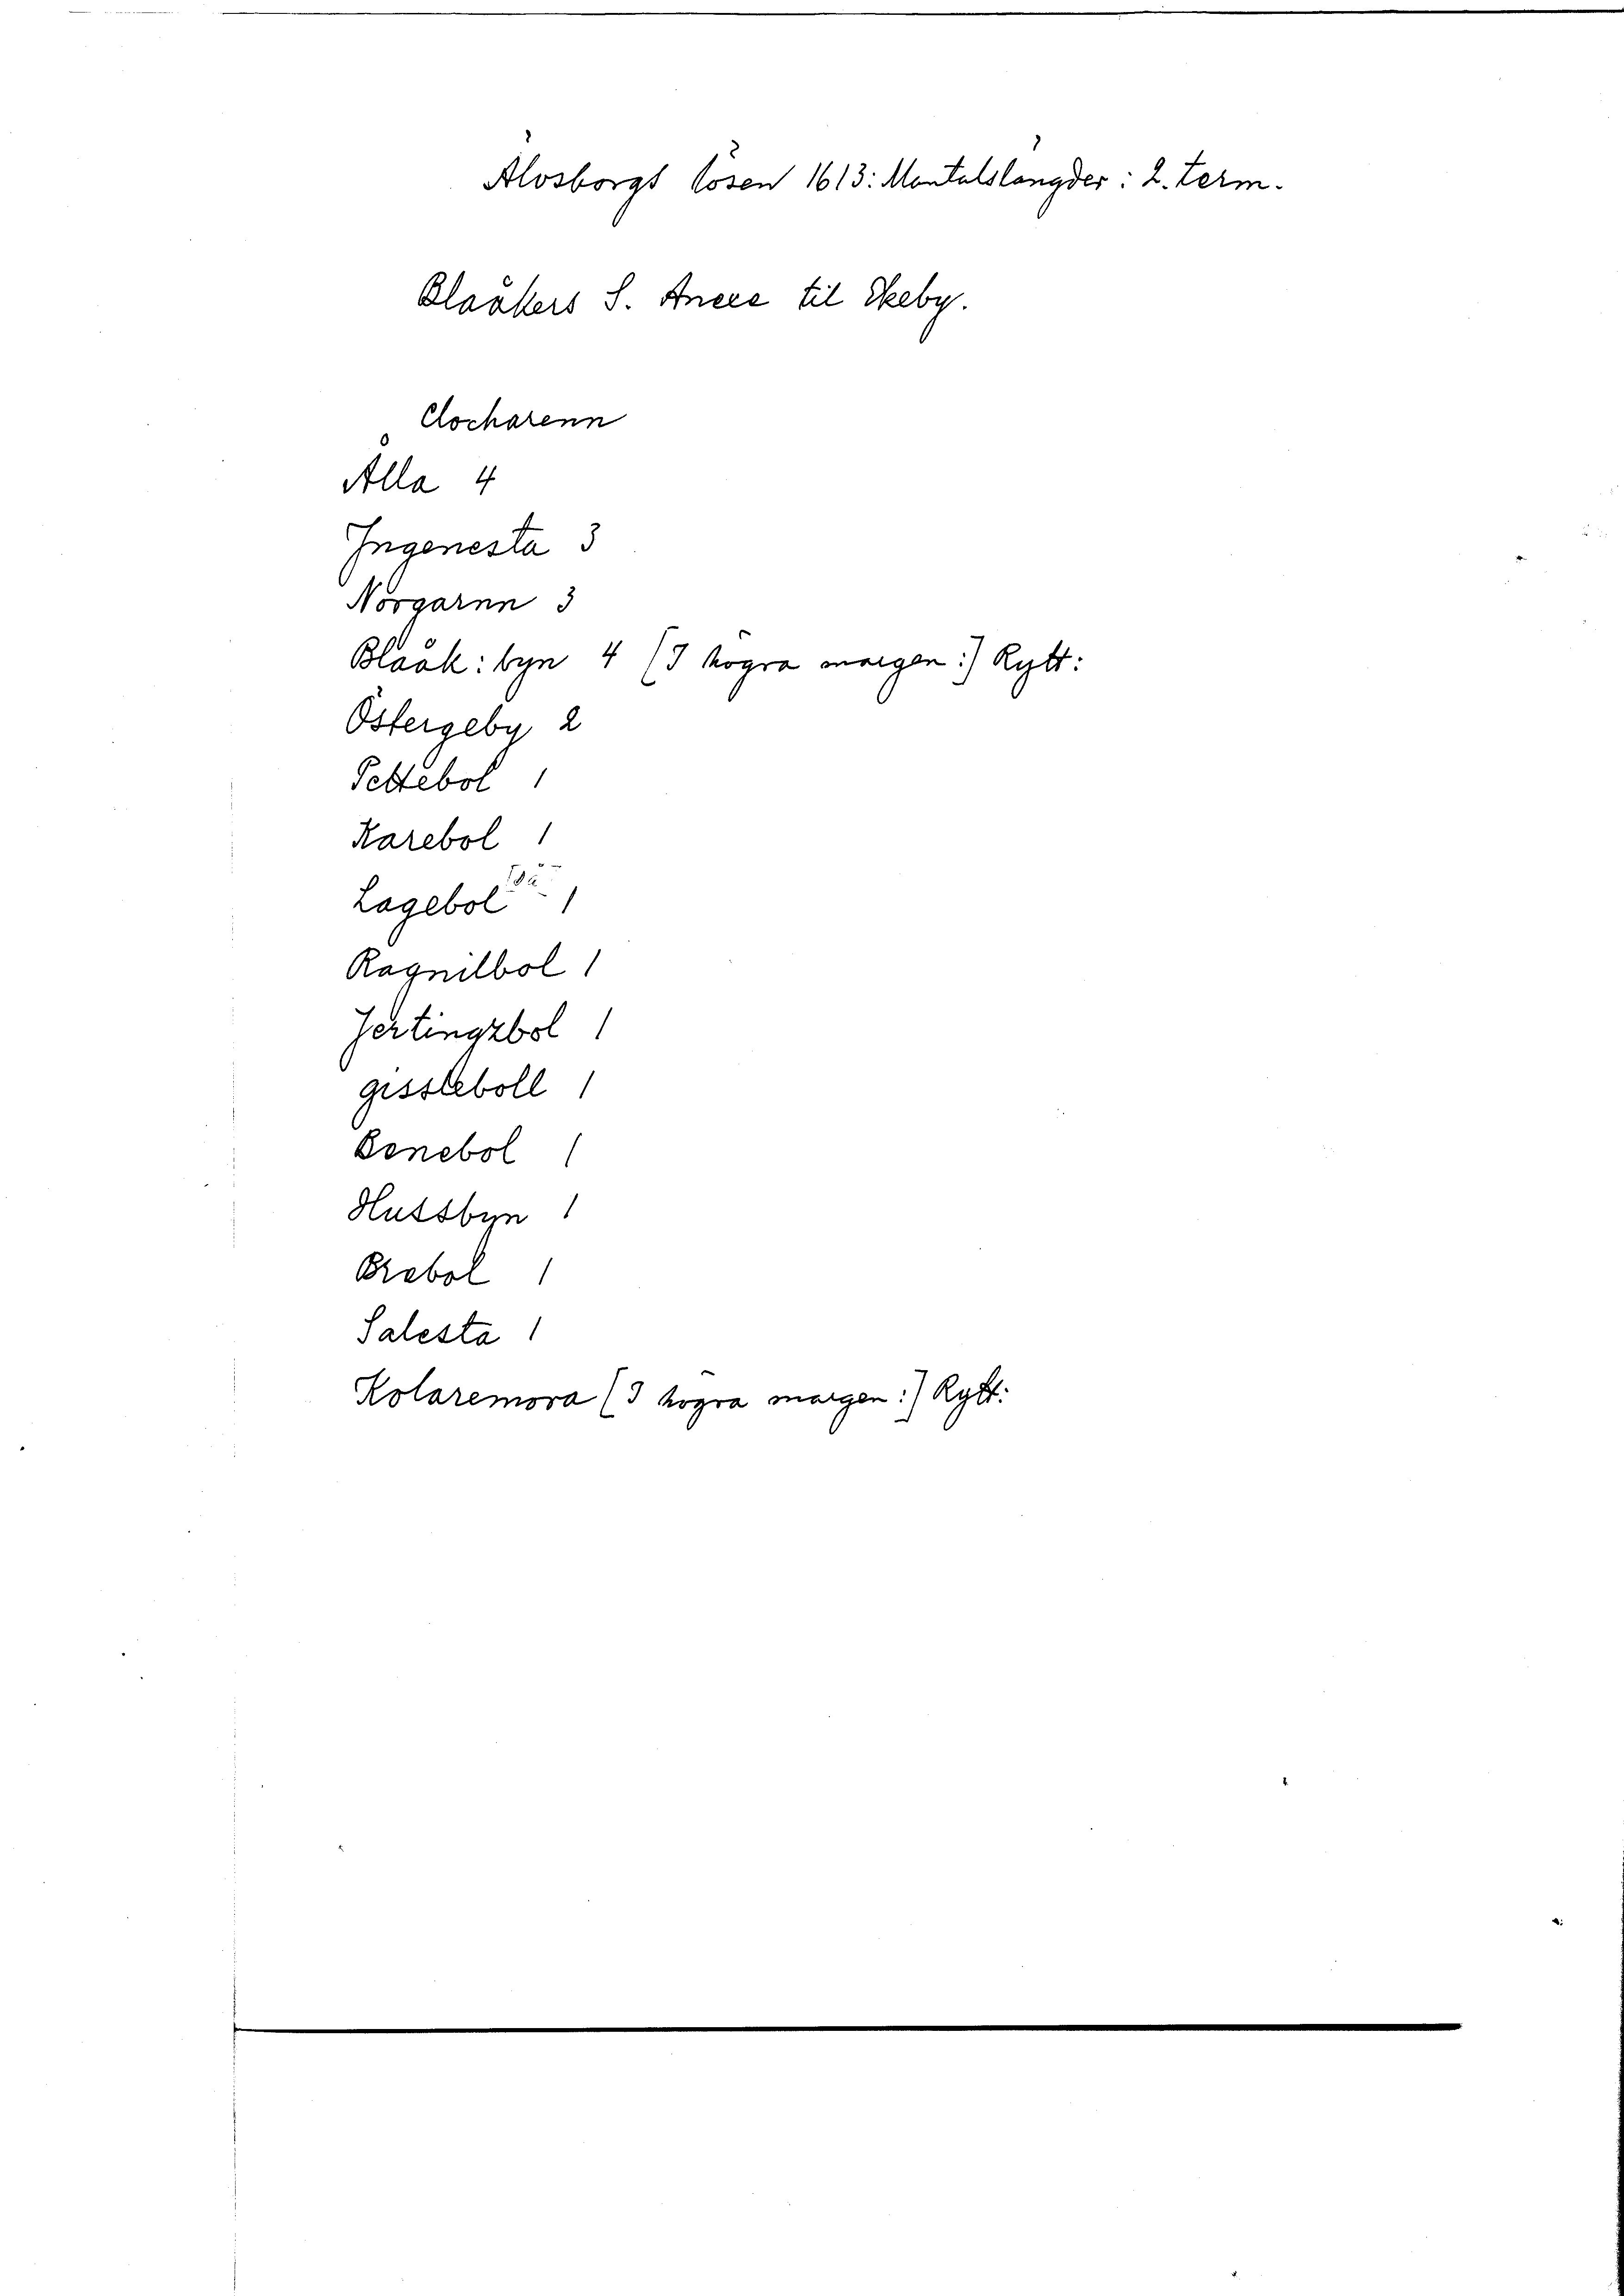 Älvsborgs lösen 1613: Mantalslängder: 2. term.
Blaakers S. Anexe til Ekeby.
Clocharenn
Ålla 4
Ingenesta 3
Norgarnn 3
Blaak: byn 4 (I högra margen:) Rytt:
Östergeby 2
Pettebol 1
Karebol 1
Lagebol 1
Ragnilbol 1
Jertingzbol 1
gissleboll 1
Benebol 1
Hussbyn 1
Brebol 1
Salesta 1
Kolaremora (I högra margen:) Rytt: